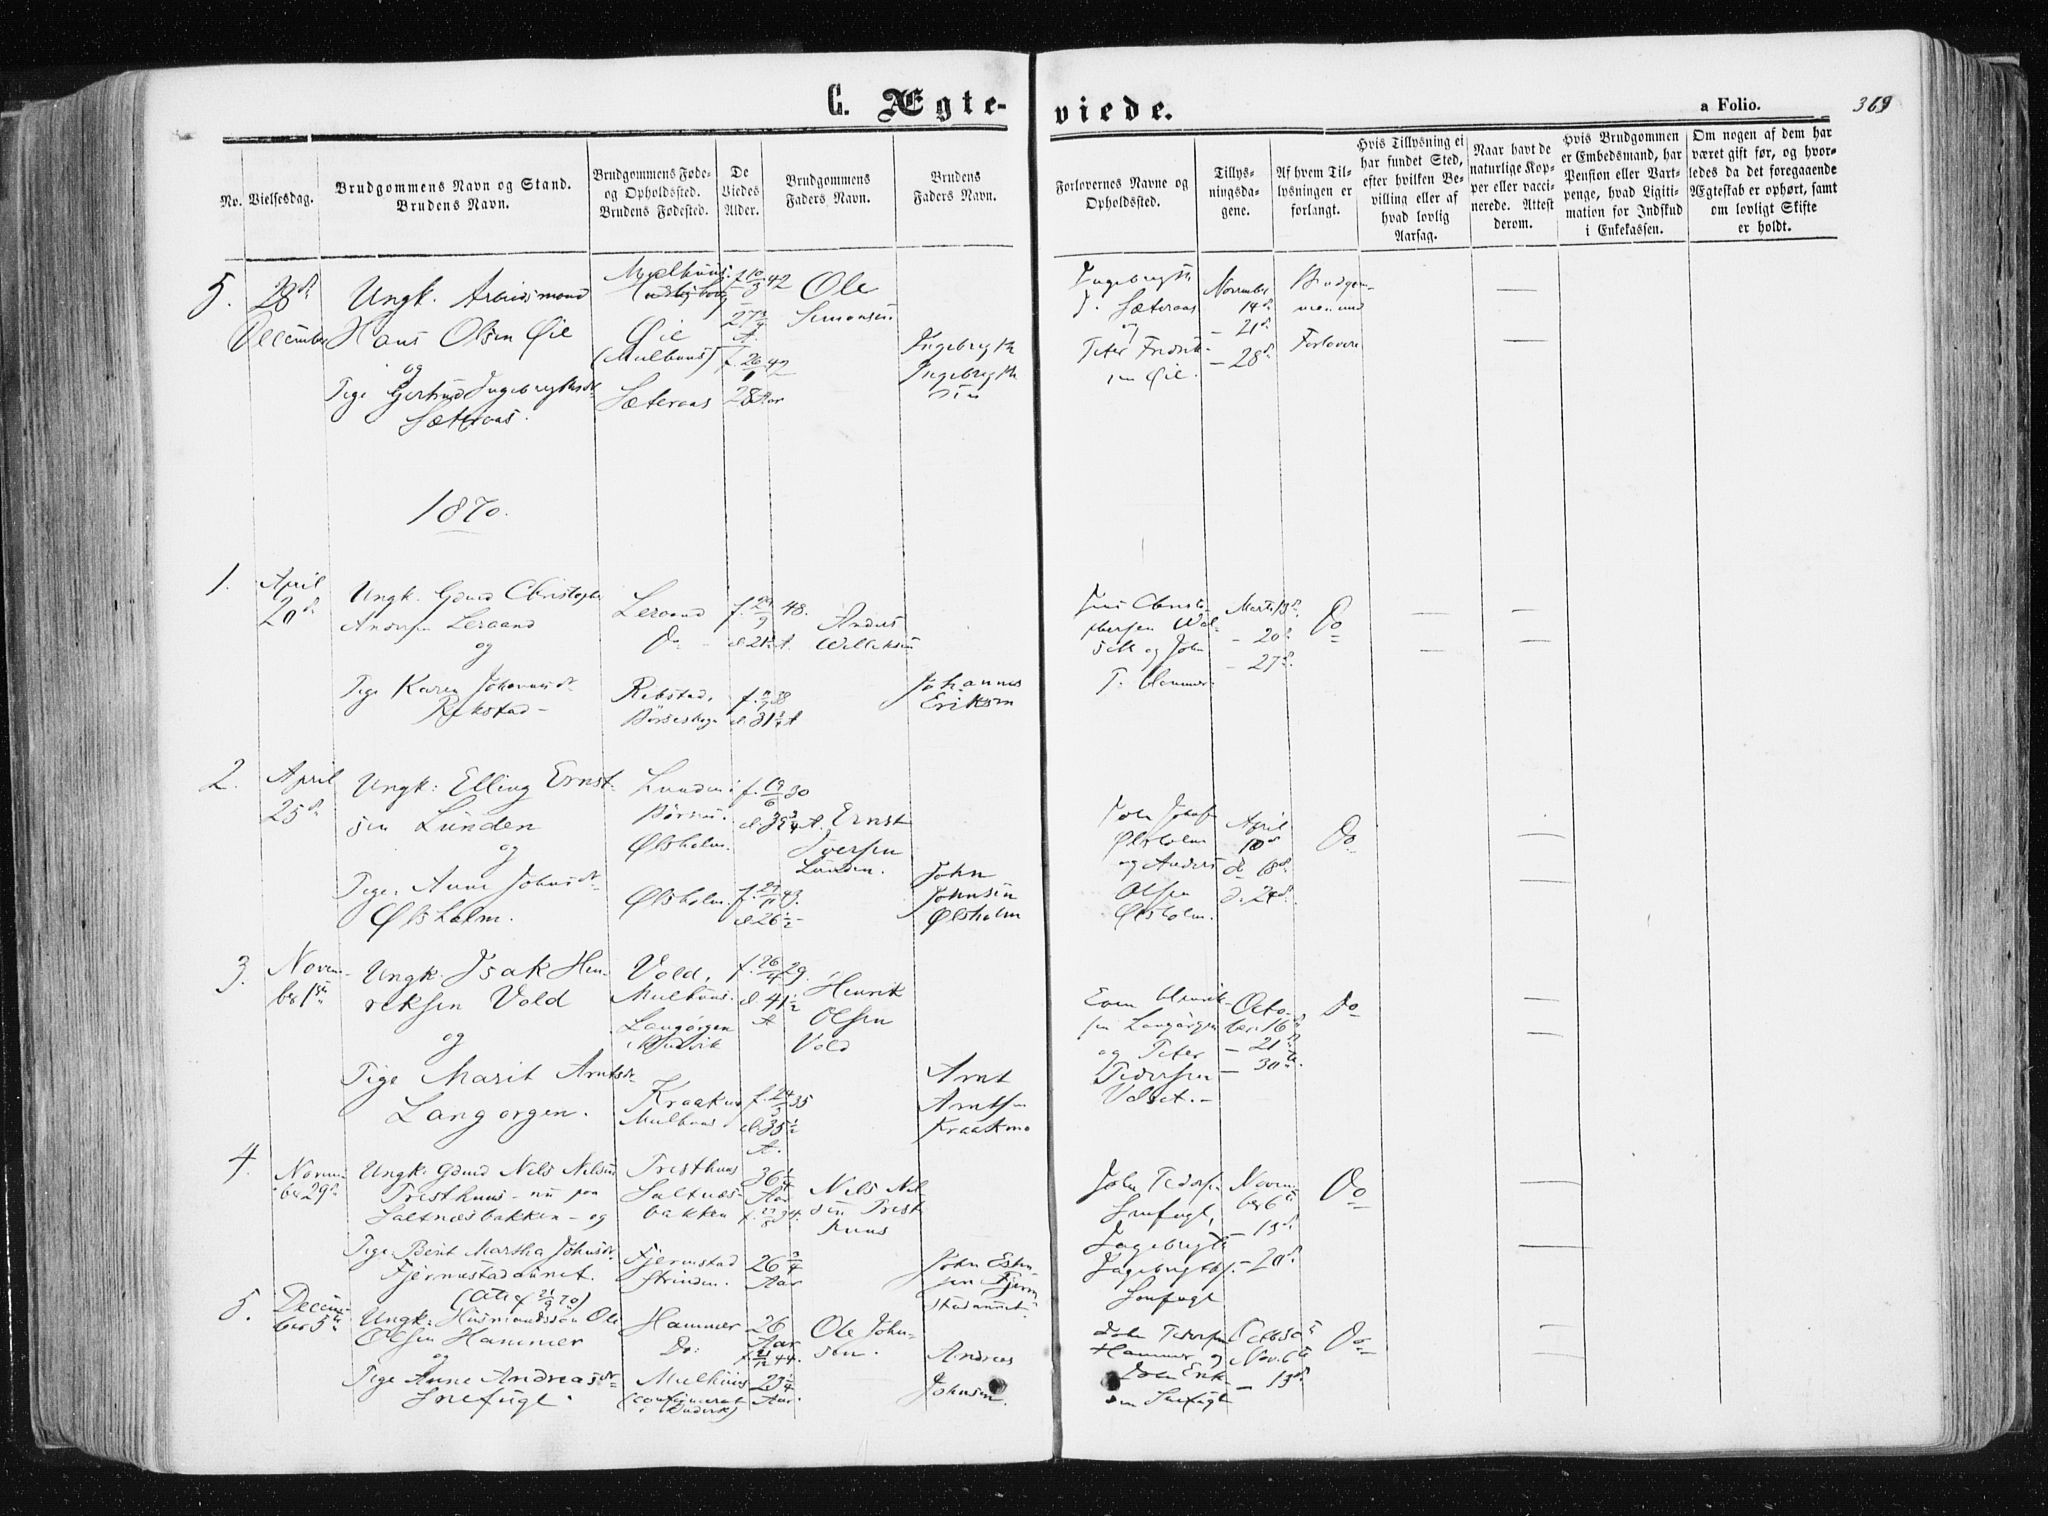 C. Ægte-
viede.
a Folio.
369
No.
Vielsesdag.
Brudgommens Navn og Stand.
Brudens Navn.
Brudgommens Føde-
og Opholdssted.
Brudens Fødested.
De
Viedes
Alder.
Brudgommens
Faders Navn.
Brudens
Faders Navn.
Forlovernes Navne og
Opholdssted.
Tillys-
ningsda-
gene.
Af hvem Til-
lysningen er
forlangt.
Hvis Tillysning ei
har fundet Sted,
efter hvilken Be-
villing eller af
hvad lovlig
Aarsag.
Naar havt de
naturlige Kop-
per eller vacci-
nerede. Attest
derom.
Hvis Brudgommen
er Embedsmand, har
Pension eller Vart-
penge, hvad Ligiti-
mation for Indskud
i Enkekassen.
Om nogen af dem har
været gift før, og hvor-
ledes da det foregaaende
Ægteskab er ophørt, samt
om lovligt Skifte
er holdt.
5.
28de
December
Ungk. Arbeidsmand
Hans Olsen Øie
og
Pige Gjertrud Ingebrigtsdt
Sæteraas.
Øie
(Melhuus)
Sæteraas
f. 10/3 42
27 3/4
A.
f. 26/1 42
28 Aar
Ole
Simonsen
Ingebrigt
Ingebrigt
sen
Ingebrigt
J. Sæteraas
og
Peter Fredrik-
sen Øie.
November
14de
– 21de
– 28de
Brudgom-
men und
Forlovere
1870.
1.
April
20de
Ungk. Gmd Christopher
Andersen Leraand
og
Pige Karen Johannesdt
Rekstad –
Leraand
Do –
Rekstad,
Børseskogn
f. 29/9 48.
al. 21 1/2 A.
al. 31 1/4 A
Anders
Willeksen
Johannes
Eriksen
Jens Christo-
phersen
og John
P. Hammer.
Marts 13de
– 20de
– 27de
Do
2.
April
25de
Ungk: Elling Ernst-
sen Lunden
og
Pige. Anne Johnsdt
Ølsholm.
Lunden i
Børsen.
Ølsholm.
Ølsholm.
f. 19/6 30
al. 39 3/4 A.
f. 29/11 43.
al. 26 1/2 –
Ernst
Iversen
Lunden.
John
Johnsen
Ølsholm
John Johns.
Ølsholm
og Anders
Olsen
Ølsholm.
April
10de
d. 18de
d. 24de
Do
3.
Novem-
ber 1ste
Ungk. Isak Hen-
riksen Vold
og
Pige Marit Arntsdt
Langørgen.
Vold,
Melhuus.
Langørgen
Kraakmo
Melhuus
f. 26/4 29.
al. 41 1/2
A
f. 24/3 35
al. 35 1/2
A.
Henrik
Olsen
Vold
Arnt
Arntsen
Kraakmo
Even Henrik-
sen Langørgen
og Peter
Pedersen
Valset. –
Octo-
ber. 16de
– 21de
– 30te.
Do
4.
Novem-
ber 29de
Ungk. Gmd Nils Nilsen
Tresthuus – nu paa
Saltnæsbakken – og
Pige. Berit Martha Johnsdt
Fjermestadaunet.
(Att. af 21/9 70)
Tresthuus
Saltnæs-
bakken
Fjermestad
Strinden.
36 1/4
Aar
26 3/4
Aar
Nils Nil-
sen Trest
huus
John Esten-
sen Fjerm
stadaunet.
John Pedersen
Snefugl,
Ingebrigt
Ingebrigts.
Snefugl
Novem-
ber 6te
– 13de
– 20de
Do
5.
Decem-
ber 5te
Ungk. Husmandssøn Ole
Olsen Hammer
og
Pige Anne Andreasdt
Snefugl.
Hammer
Do:
Melhuus
(confirmeret
26
Aar
f. 21/12 44.
23 1/4
Aar.
Ole John-
sen.
Andreas
Johnsen.
John Pedersen
Hammer og
John Erik-
sen Snefugl
Octb 30te
Nov. 6te
– 13de
Do